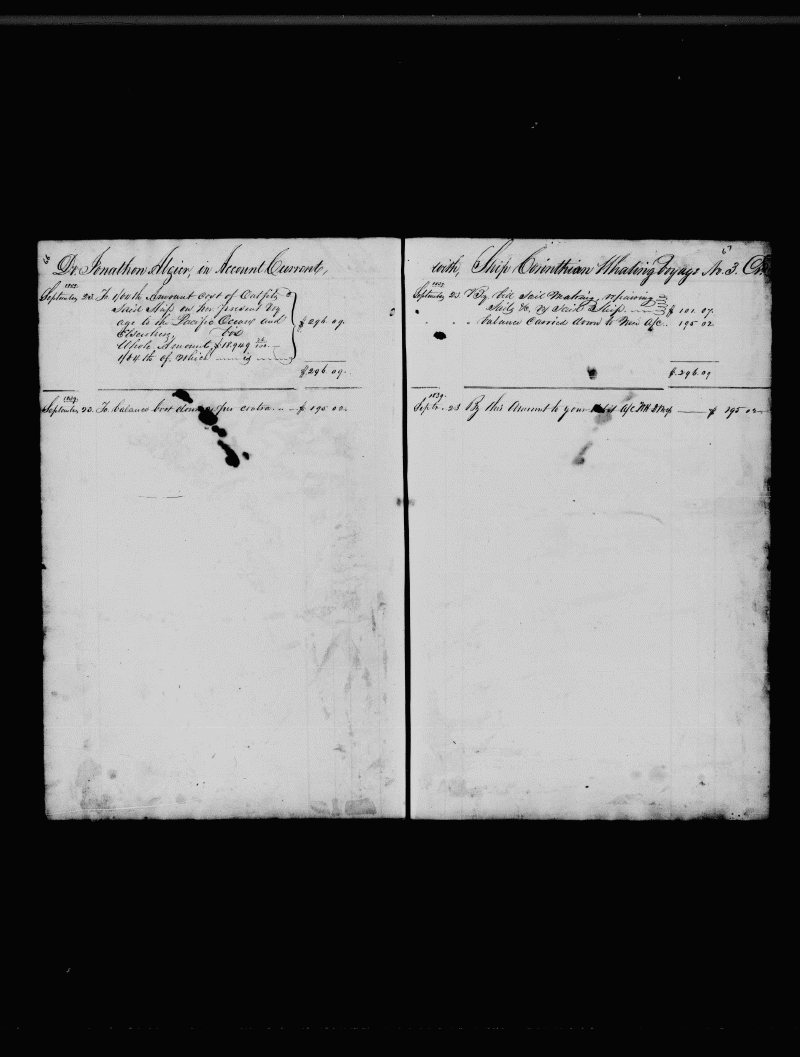 Dr. Jonathon Algier, in Account Current,
1839.
September 23. To 1/64 th Amount Cost of Outfits
Said Ship on her present Voy
age to the Pacific Ocean and
Elsewhere,
Whole Amount $18,949
1/64 th of which is
$ 296 09.
$ 296 09.
1839.
September 23. To balance bort down contra $ 195 02.
with, Ship Corinthian Whaling Voyage No. 3. Cr.
1839.
September 23. By bill Sail Making, repairing
Sails &c. of Said Ship $ 101 07.
" " balance Carried down to New A/c. 195 02
$ 296 09
1839.
Septr. 23 By this Amount to your A/c $ 195 02